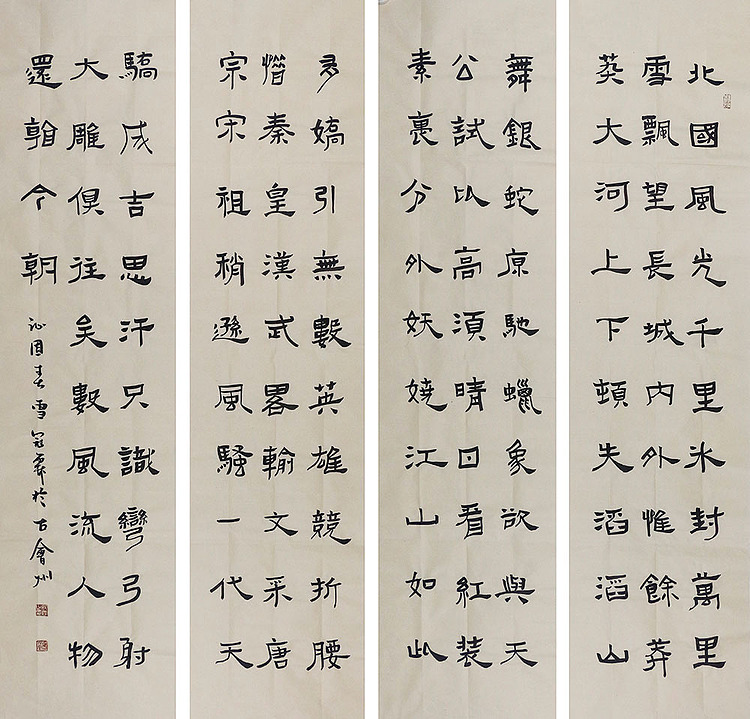 北國風光千里氷封萬里
雪飄望長城內外惟餘莽
莽大河上下頓失滔滔山
舞銀蛇原馳蠟象欲與天
公試比高須晴日看紅裝
素裹分外妖嬈江山如此
多嬌引無數英雄競折腰
惜秦皇漢武畧輸文采唐
宗宋祖稍遜風騷一代天
驕成吉思汗只識彎弓射
大雕俱往矣數風流人物
還看今朝
沁園春雪於古會州